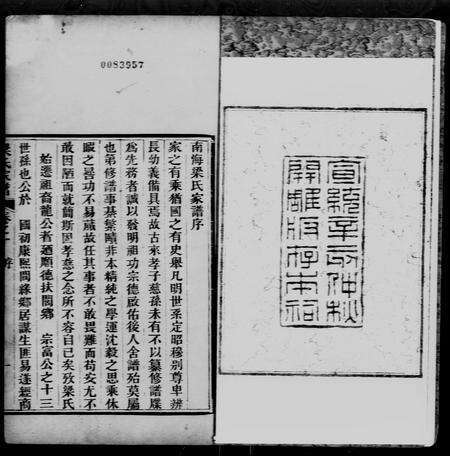 宣統辛亥仲秋
開雕版存本祠
0083957
南海梁氏家譜序
家之有乘猶國之有史舉凡明世系定昭穆別尊卑辨
長幼義備具焉故古來孝子慈孫未有不以纂修譜牒
為先務者誠以發明祖功宗德啟佑後人舍譜殆莫屬
也第修譜事綦繁賾非本精銳之學運沈毅之思乘休
暇之晷功不易蕆故任其事者不敢畏難而苟安尤不
敢因陋而就簡斯固孝慈之念所不容自已矣攷梁氏
始遷祖裔龍公者迺順德扶閭鄉 宗富公之十三
世孫也公於 國初康熙間緣鄉居謀生匪易遂經商
梁氏家譜 序 一